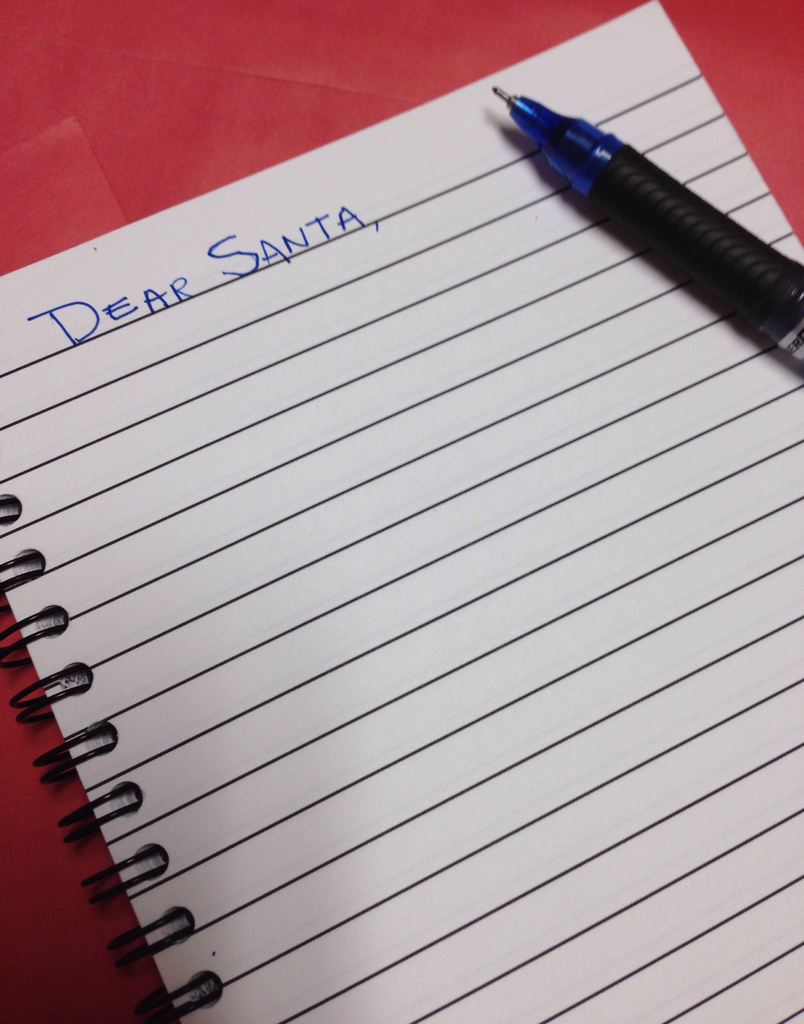 DEAR SANTA,